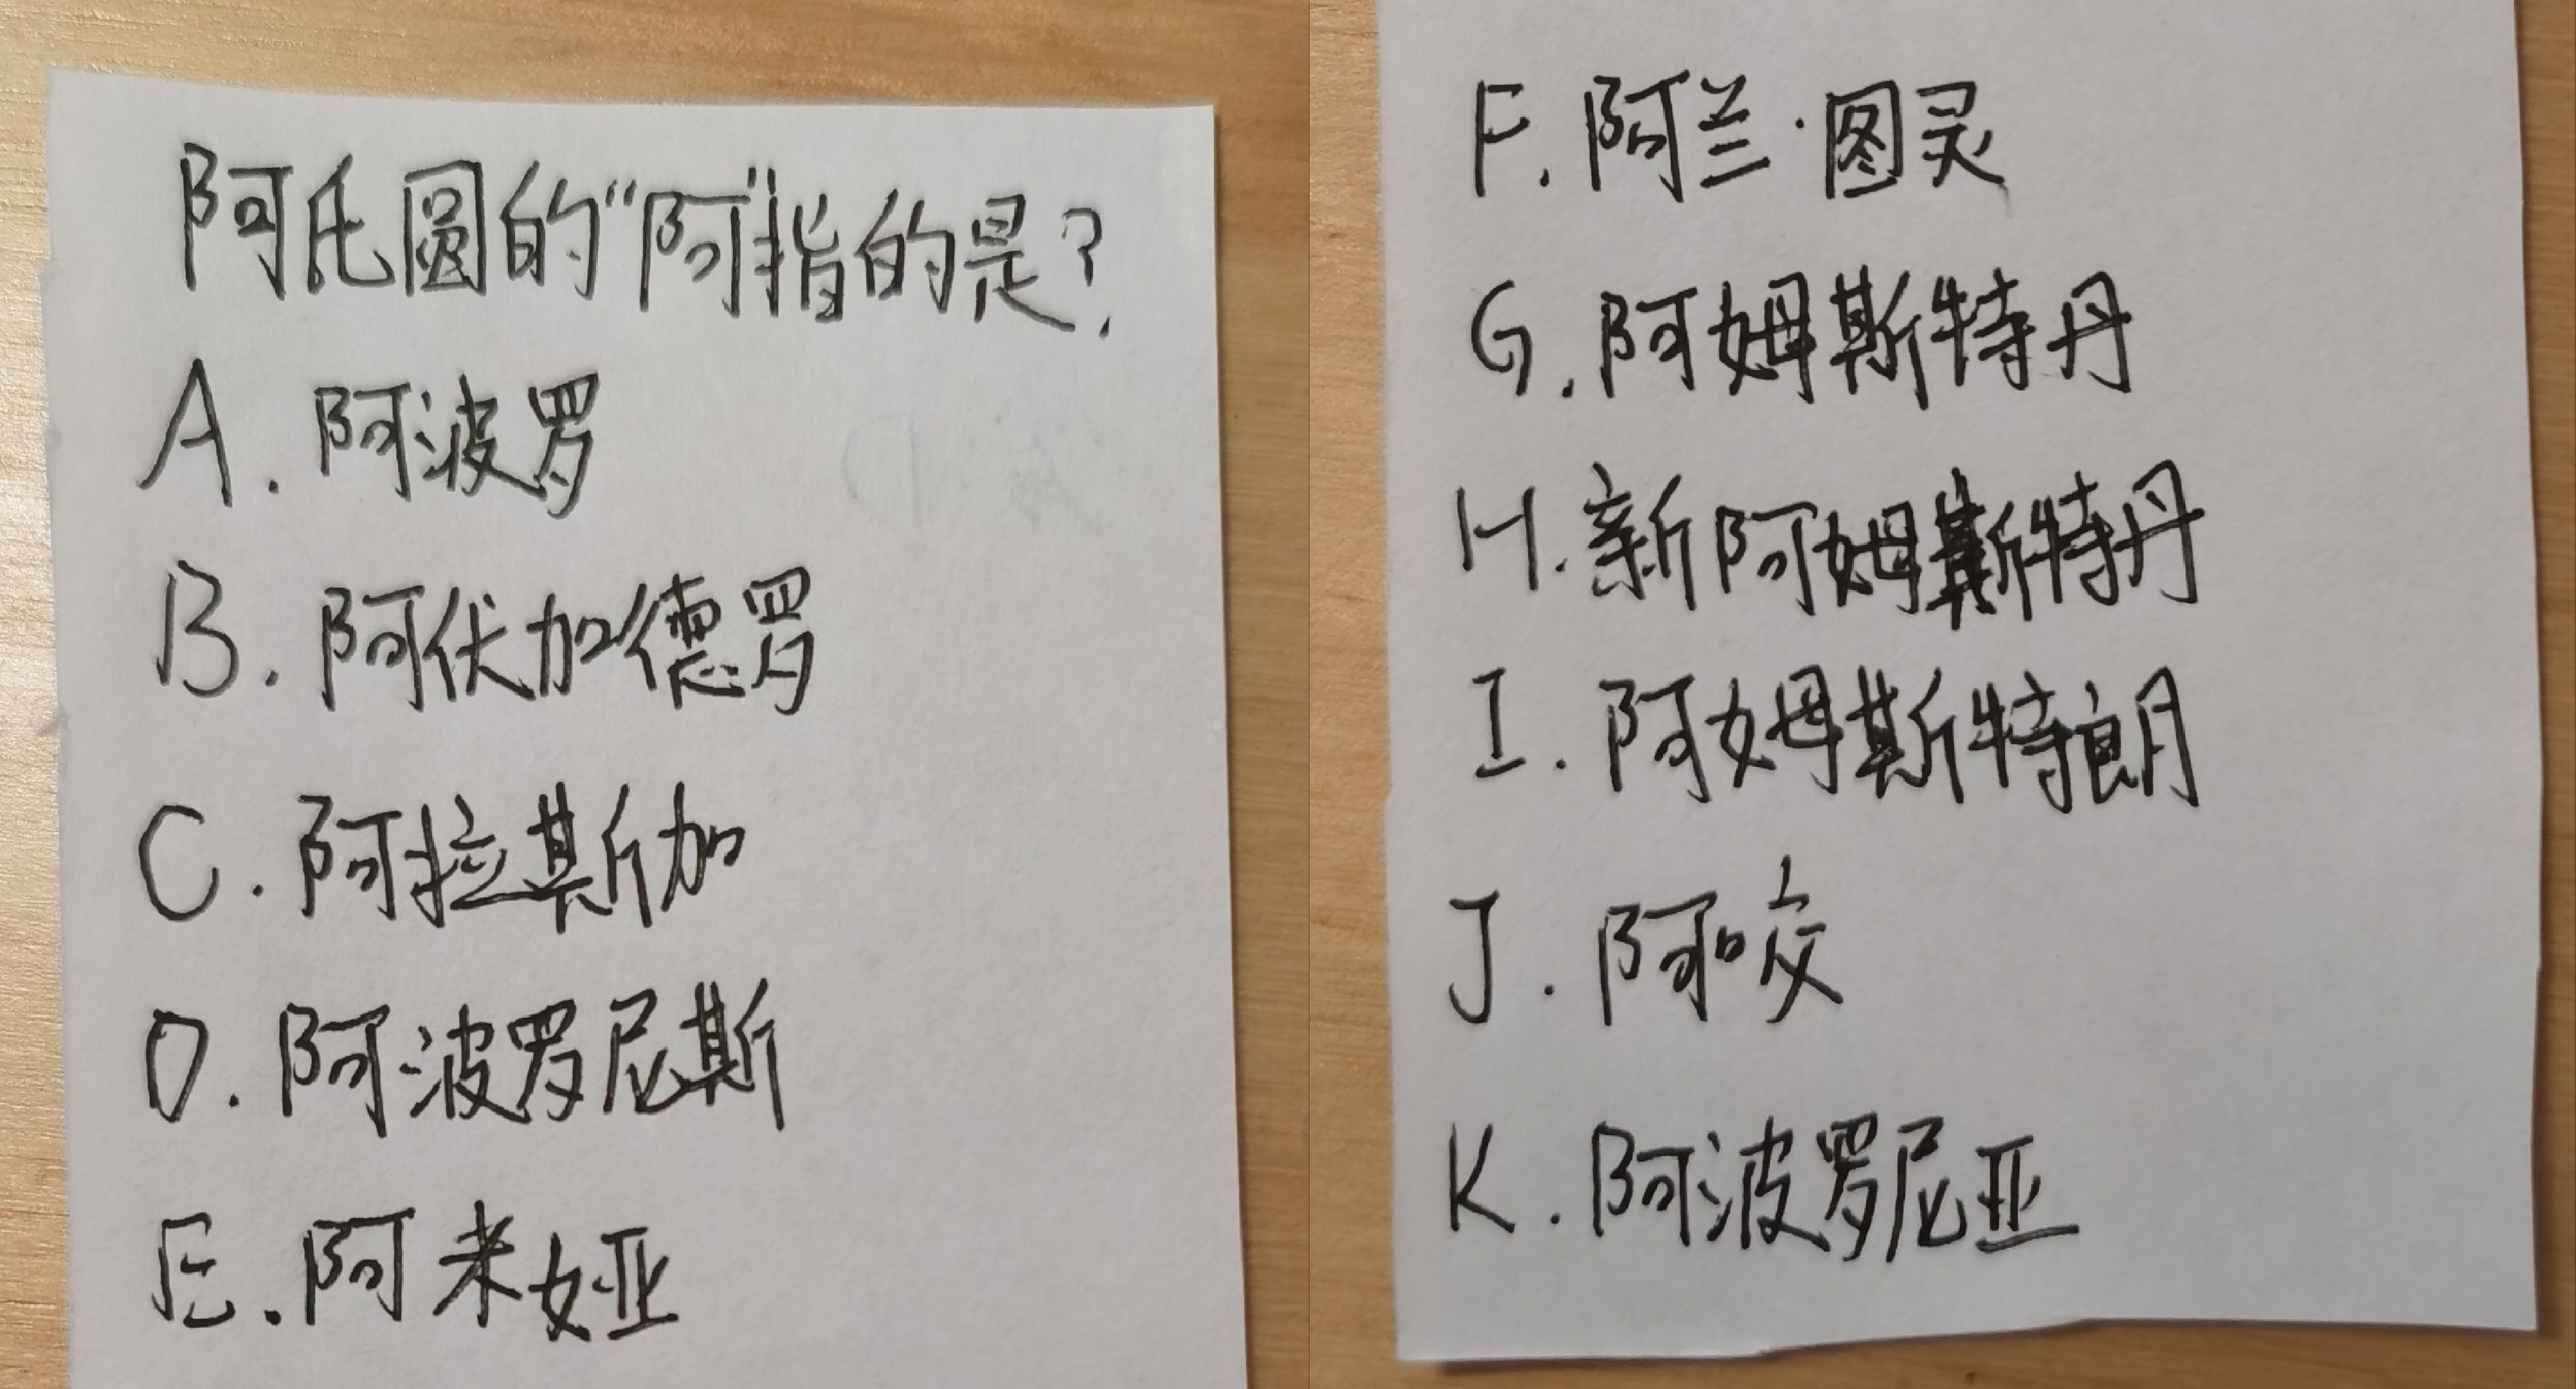 阿氏圆的“阿”指的是?
A. 阿波罗
B. 阿伏加德罗
C. 阿拉斯加
D. 阿波罗尼斯
E. 阿米娅
F. 阿兰·图灵
G. 阿姆斯特丹
H. 新阿姆斯特丹
I. 阿姆斯特朗
J. 阿咬
K. 阿波罗尼亚